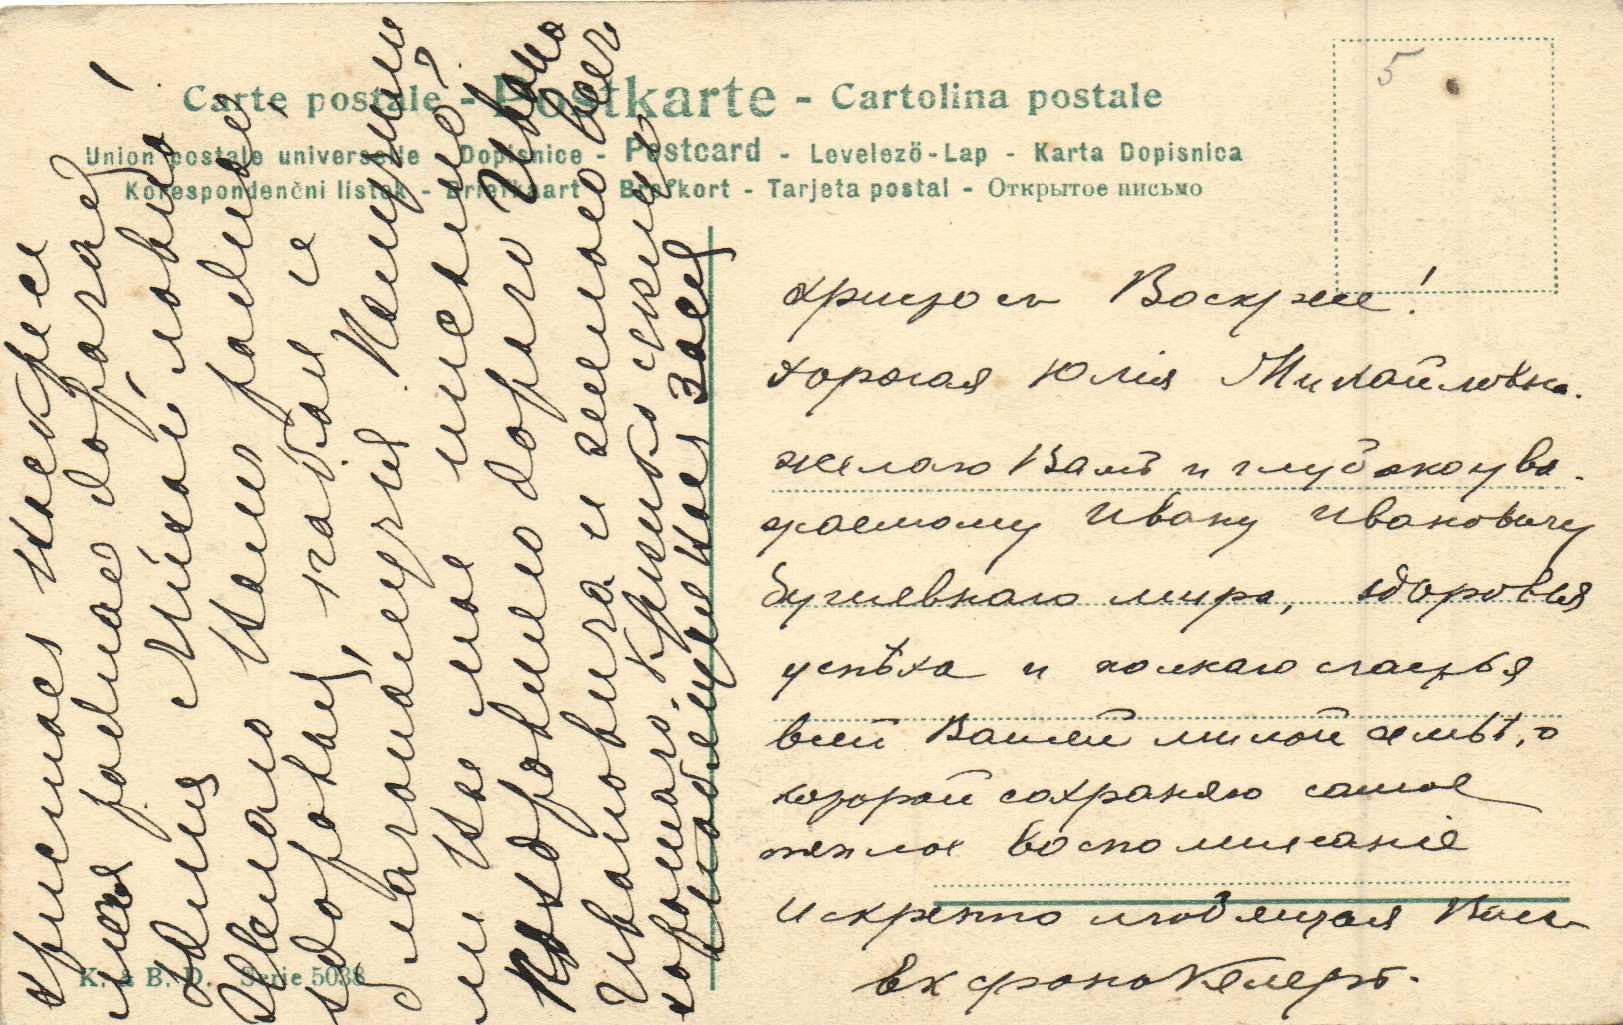 Carte postale - Postkarte - Cartolina postale
Union postale universelle - Dopisnice - Postcard - Levelező-Lap - Karta Dopisnica
Korespondenčni listek - Briefkaart - Brefkort - Tarjeta postal - Открытое письмо
5
Христосъ Воскресе!
дорогая Юлія Михайловна.
желаю Вамъ и глубокоува-
жаемому Ивану Ивановичу
душевнаго мира, здоровья
успѣха и полнаго счастья
всей Вашей милой семьѣ, о
которой сохраняю самое
теплое воспоминаніе
Искренно любящая Васъ
Христосъ Воскресе
моя родная дорогая!
Юлія Михайловна!
Желаю Вамъ
здоровья,
получили
ли Вы мое письмо?
Поздравляю дорогого Ивана
Ивановича и желаю всего
хорошаго. Крѣпко
любящая Васъ
K. & B. D. Serie 5038